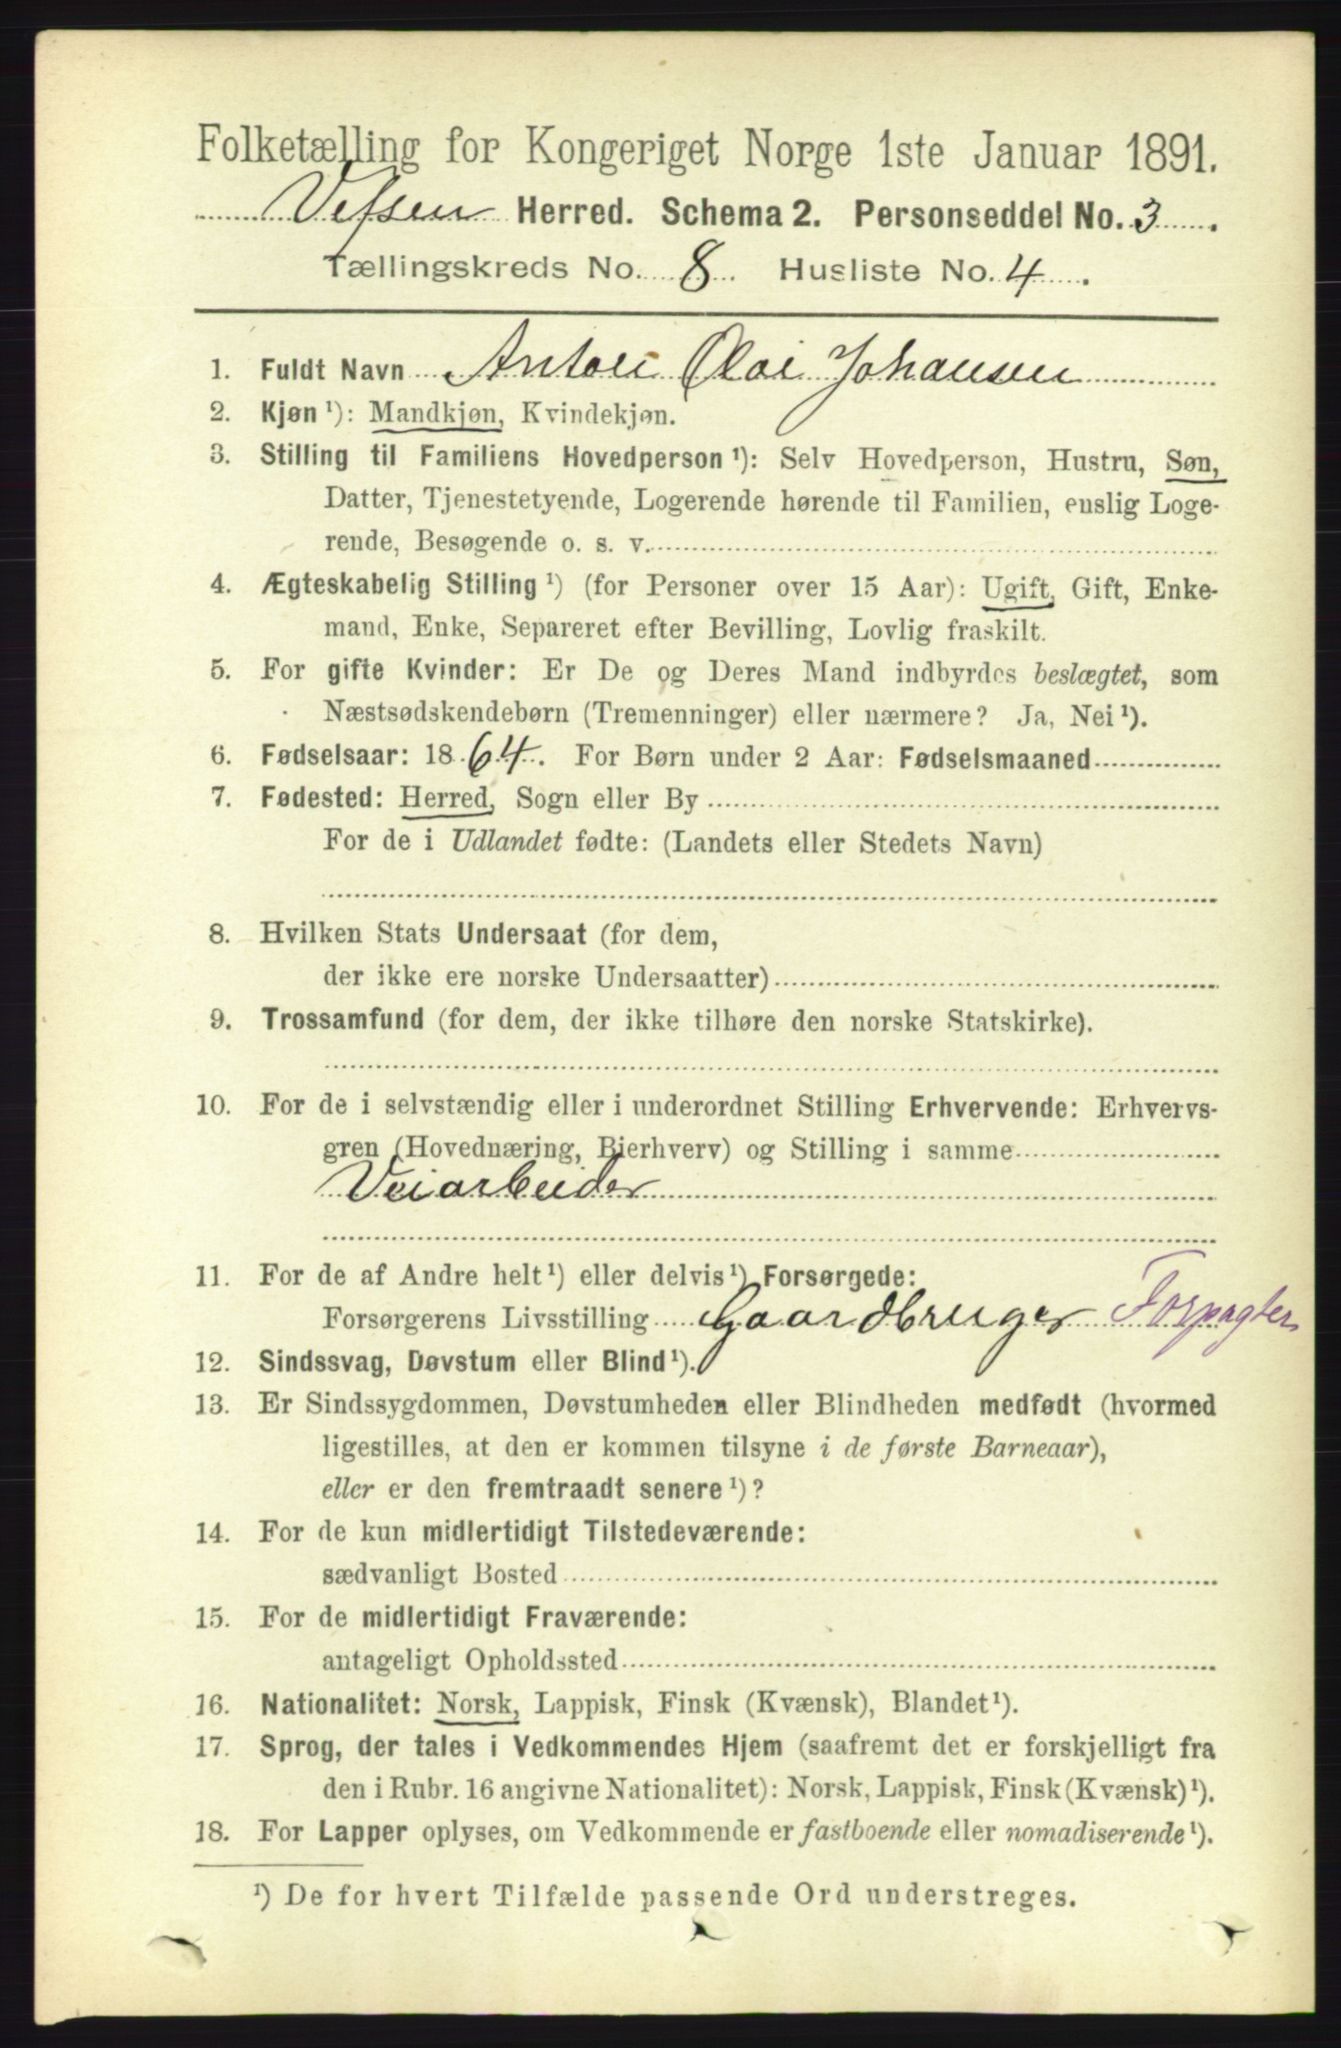 Folketælling for Kongeriget Norge 1ste Januar 1891.
Vefsen Herred. Schema 2. Personseddel No. 3.
Tællingskreds No. 8. Husliste No. 4.
1. Fuldt Navn Anton Olai Johansen
2. Kjøn ¹): Mandkjøn, Kvindekjøn.
3. Stilling til Familiens Hovedperson ¹): Selv Hovedperson, Hustru, Søn,
Datter, Tjenestetyende, Logerende hørende til Familien, enslig Loge-
rende, Besøgende o. s. v.
4. Ægteskabelig Stilling ¹) (for Personer over 15 Aar): Ugift, Gift, Enke-
mand, Enke, Separeret efter Bevilling, Lovlig fraskilt.
5. For gifte Kvinder: Er De og Deres Mand indbyrdes beslægtet, som
Næstsødskendebørn (Tremenninger) eller nærmere? Ja, Nei ¹).
6. Fødselsaar: 1864. For Børn under 2 Aar: Fødselsmaaned
7. Fødested: Herred, Sogn eller By
For de i Udlandet fødte: (Landets eller Stedets Navn)
8. Hvilken Stats Undersaat (for dem,
der ikke ere norske Undersaatter)
9. Trossamfund (for dem, der ikke tilhøre den norske Statskirke).
10. For de i selvstændig eller i underordnet Stilling Erhvervende: Erhvervs-
gren (Hovednæring, Bierhverv) og Stilling i samme
Veiarbeider
11. For de af Andre helt ¹) eller delvis ¹) Forsørgede:
Forsørgerens Livsstilling Gaardbruger Forpagter
12. Sindssvag, Døvstum eller Blind ¹).
13. Er Sindssygdommen, Døvstumheden eller Blindheden medfødt (hvormed
ligestilles, at den er kommen tilsyne i de første Barneaar),
eller er den fremtraadt senere ¹)?
14. For de kun midlertidigt Tilstedeværende:
sædvanligt Bosted
15. For de midlertidigt Fraværende:
antageligt Opholdssted
16. Nationalitet: Norsk, Lappisk, Finsk (Kvænsk), Blandet ¹).
17. Sprog, der tales i Vedkommendes Hjem (saafremt det er forskjelligt fra
den i Rubr. 16 angivne Nationalitet): Norsk, Lappisk, Finsk (Kvænsk) ¹).
18. For Lapper oplyses, om Vedkommende er fastboende eller nomadiserende ¹).
¹) De for hvert Tilfælde passende Ord understreges.